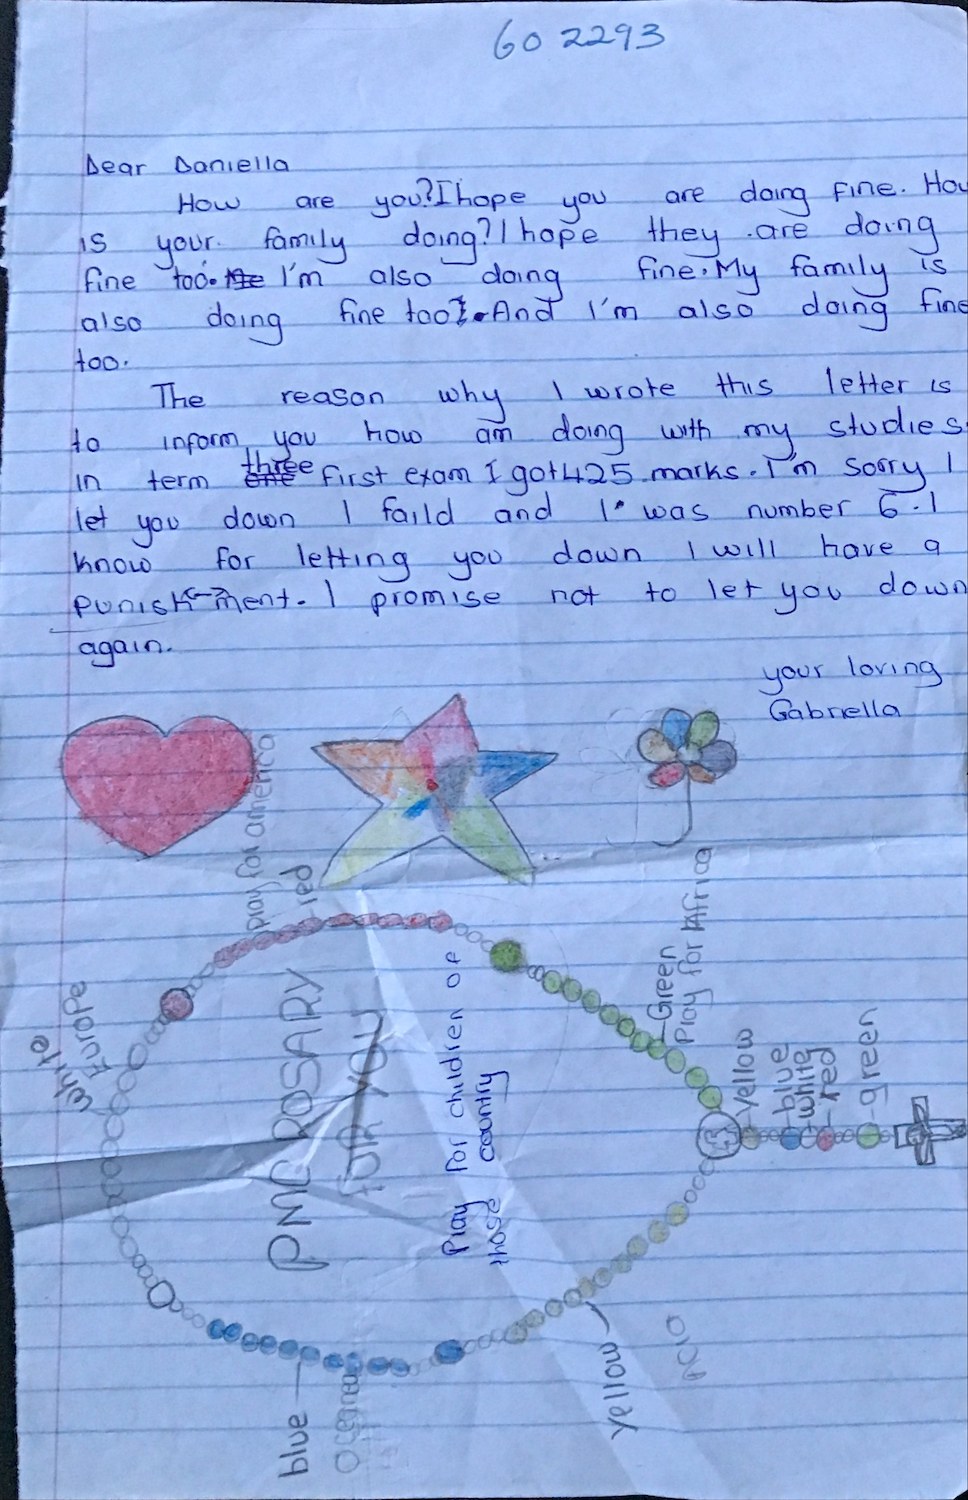 60 2293
Dear Daniella
How are you? I hope you are doing fine. How
is your family doing? I hope they are doing
fine too. I'm also doing fine. My family is
also doing fine too. And I'm also doing fine
too.
The reason why I wrote this letter is
to inform you how am doing with my studies.
in term three first exam I got 425 marks. I'm sorry I
let you down I faild and I was number 6. I
know for letting you down I will have a
punishment. I promise not to let you down
again.
your loving
Gabriella
pray for america
red
White
Europe
PMC ROSARY
FOR YOU
Pray for children of
those country
Green
Pray for Africa
yellow
blue
white
red
green
yellow
blue